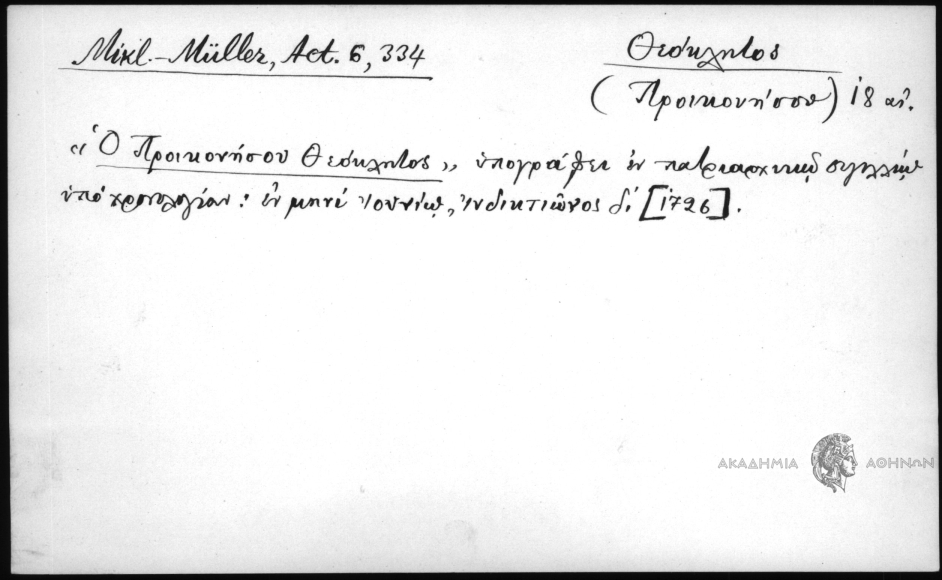 Mikl.-Müller, Act. 6, 334
Θεόκλητος
(Προικονήσου) 18 αἰ.
«Ὁ Προικονήσου Θεόκλητος», ὑπογράφει ἐν πατριαρχικῷ σιγιλλίῳ
ὑπὸ χρονολογίαν: ἐν μηνὶ Ἰουνίῳ, Ἰνδικτιῶνος δʹ [1726].
ΑΚΑΔΗΜΙΑ ΑΘΗΝΩΝ